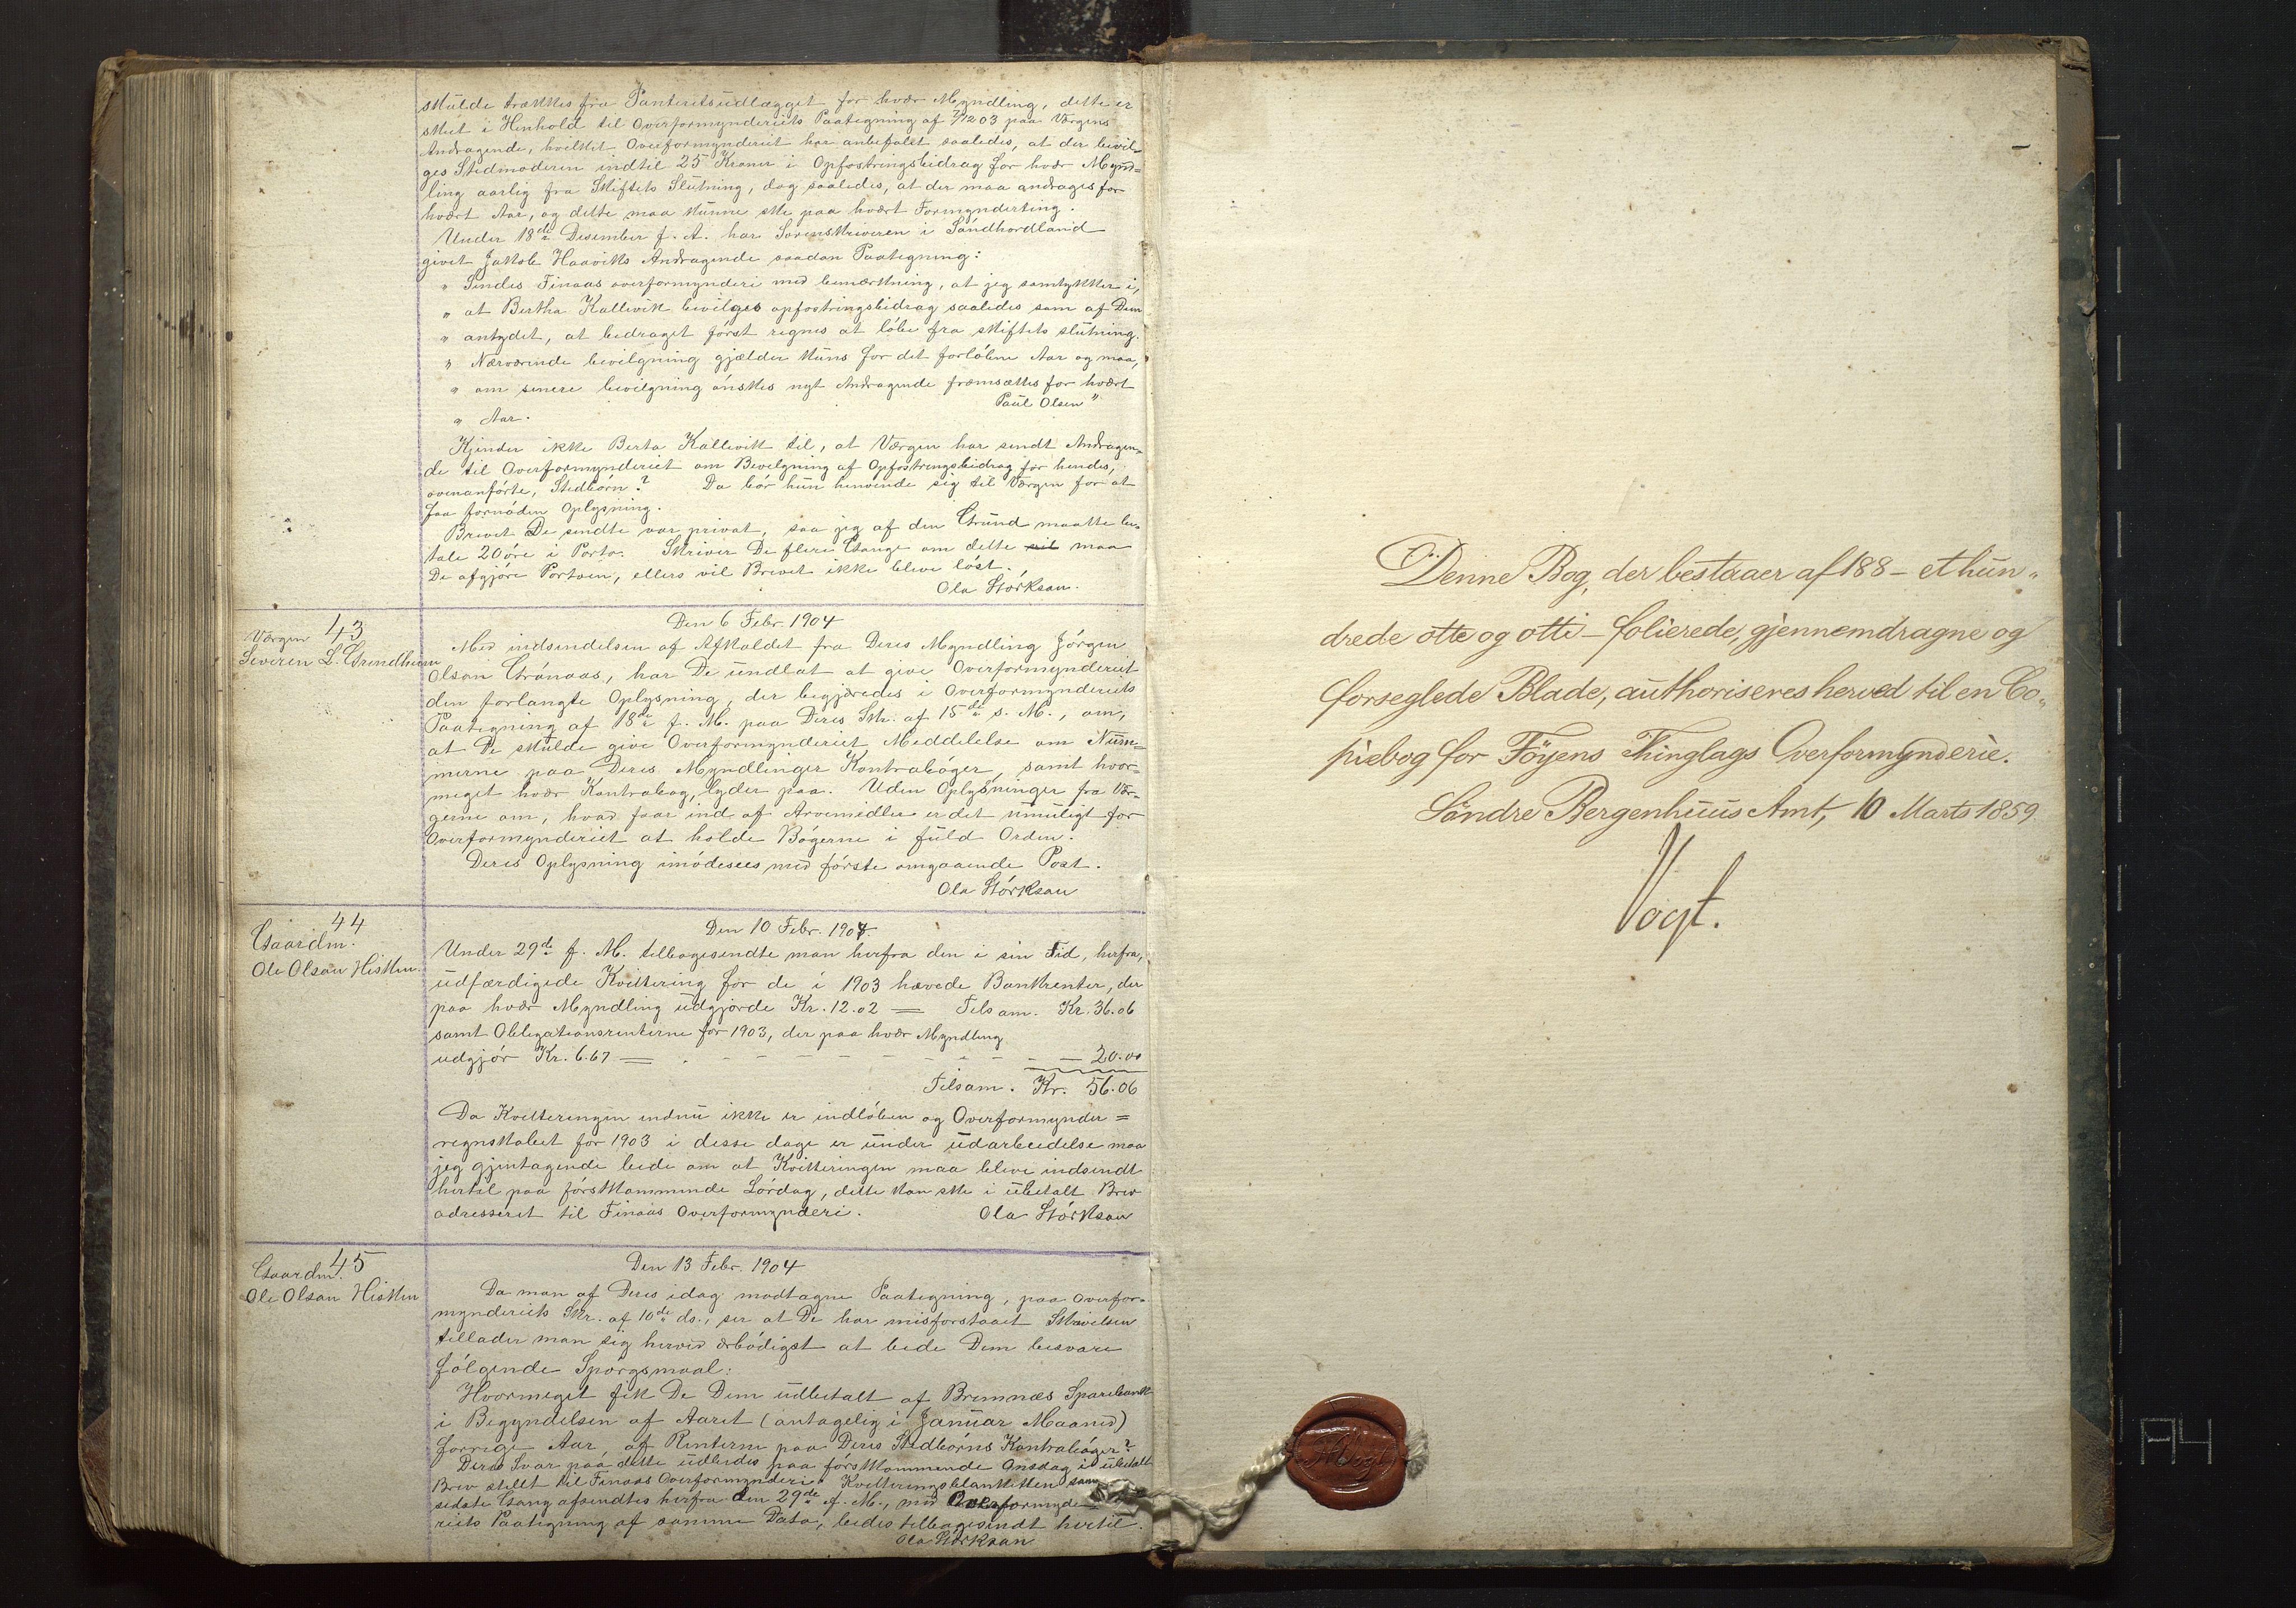 skulde trækkes fra Panteretsudlægget for hvær Myndling, dette er
skeet i Henhold til Overformynderiets Paategning af 7/12 03 paa Værgens
Andragende, hvilket Overformynderiet har anbefalet saaledes, at der bevil-
ges Stedmoderen indtil 25 Kroner i Opfostringsbidrag for hvær Mynd=
ling aarlig fra Skiftets Slutning, dog saaledes, at der maa andrages for
hvært Aar, og dette maa kunne ske paa hvært Formynderting.
Under 18de Desember f. A. har Sorenskriveren i Søndhordland
givet Jakob Haaviks Andragende saadan Paategning:
" Sendes Finaas overformynderi med bemærkning, at jeg samtykker i,
" at Bertha Kallevik bevilges opfostringsbidrag saaledes som af Dem
" antydet, at bedraget først regnes at løbe fra skiftets slutning.
" Nærværende bevilgning gjælder kuns for det forløbne Aar og maa,
" om senere bevilgning ønskes nyt Andragende fræmsættes for hvært
" Aar. Paul Olsen "
Kjender ikke Berta Kallevik til, at Værgen har sendt Andragen-
de til Overformynderiet om Bevelgning af Opfostringsbidrag for hendes,
ovenanførte, Stedbørn? Da bør hun henvende sig til Værgen for at
faa fornøden Oplysning.
Brevet De sendte var privat, saa jeg af den Grund maatte be-
tale 20 øre i Porto. Skriver De flere Gange om dette maa
De afgjøre Portoen, ellers vil Brevet ikke bleve løst.
Ola Størkson.
43
Værgen
Severen L. Grindheim
Den 6 Febr. 1904
Med indsendelsen af Afkaldet fra Deres Myndling Jørgen
Olson Grønaas, har De undlat at give Overformynderiet
den forlangte Oplysning, der begjæredes i Overformynderiets
Paategning af 18de f. M. paa Deres Skr. af 15de s. M., om,
at De skulde give Overformynderiet Meddelelse om Num=
merne paa Deres Myndlinger Kontrabøger, samt hvor=
meget hvær Kontrabog, lyder paa. Uden Oplysninger fra Vær=
gerne om, hvad faar ind af Arvemidler er det umuligt for
Overformynderiet at holde Bøgerne i fuld Orden.
Deres Oplysning imødesees med første omgaaende Post.
Ola Størkson
44
Gaardm.
Ole Olson Hisken.
Den 10 Febr. 1904.
Under 29de f. M. tilbagesendte man herfra den i sin Tid, herfra,
udfærdigede Kvittering for de i 1903 hævede Bankrenter, der
paa hvær Myndling udgjorde Kr. 12.02 = Tilsam. Kr. 36.06
samt Obligationsrenterne for 1903, der paa hvær Myndling
udgjør Kr. 6.67 = - - - - - - - - - - 20.00
Tilsam. Kr. 56.06
Da Kvitteringen endnu ikke er indløben og Overformynder=
regnskabet for 1903 i desse dage er under udarbeidelse maa
jeg gjentagende bede om at Kvitteringen maa bleve indsendt
hertil paa førstkommende Lørdag, dette kan ske i ubetalt Brev
adresseret til Finaas Overformynderi. Ola Størkson
45
Gaardm.
Ole Olson Hisken
Den 13 Febr. 1904
Da man af Deres idag modtagne Paategning, paa Overfor-
mynderiets Skr. af 10de ds., ser at De har misforstaaet Skrivelsen
tellader man sig herved ærbødigst at bede Dem besvare
følgende Spørgsmaal:
Hvormeget fik De Dem udbetalt af Bremnæs Sparebank
i Begyndelsen af Aaret (antagelig i Januar Maaned)
forrige Aar, af Renterne paa Deres Stedbørns Kontrabøger?
Deres Svar paa dette udbedes paa førstkommende Onsdag i ubetalt
Brev stelet til Finaas Overformynderi. Kvitteringsblanketten som
sidste Gang afsendtes herfra den 29de f. M., med Overformynde
riets Paategning af samme Dato, bedes tilbagesendt hertil.
Ola Størkson
Denne Bog, der bestaaer af 188 - et hun-
drede otte og otti - folierede, gjennemdragne og
forseglede Blade, authoriseres herved til en Co-
piebog for Föyens Thinglags Overformynderie.
Söndre Bergenhuus Amt, 10 Marts 1859.
Vogt.